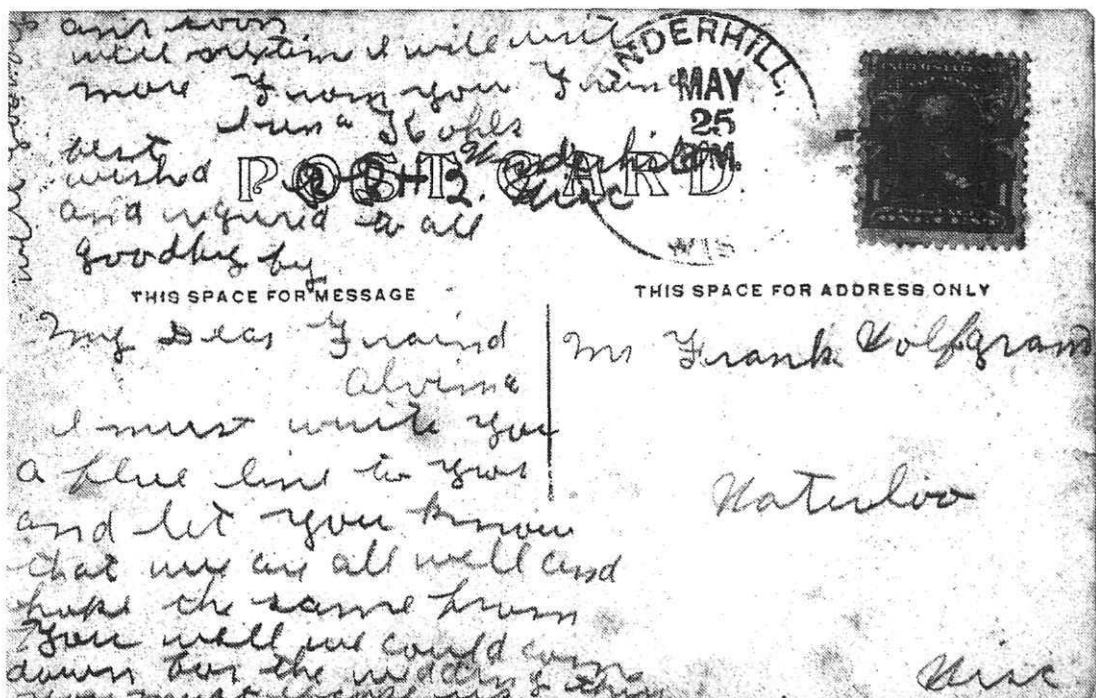 ans soon
well  I will writ
more From you Friend
 Kohls
best
wished
and regured to all
goodby by
POST CARD
UNDERHILL,
MAY
25
M.
WIS
R 2 + B 2. Wisc
THIS SPACE FOR MESSAGE
THIS SPACE FOR ADDRESS ONLY
My Dear Fraind
Alvina
I must write you
a  line to you
and let you know
that we are all well and
hope the same from
You well we could com
down for the wedding this
you must
Mr Frank Wolfgram
Waterloo
Wisc